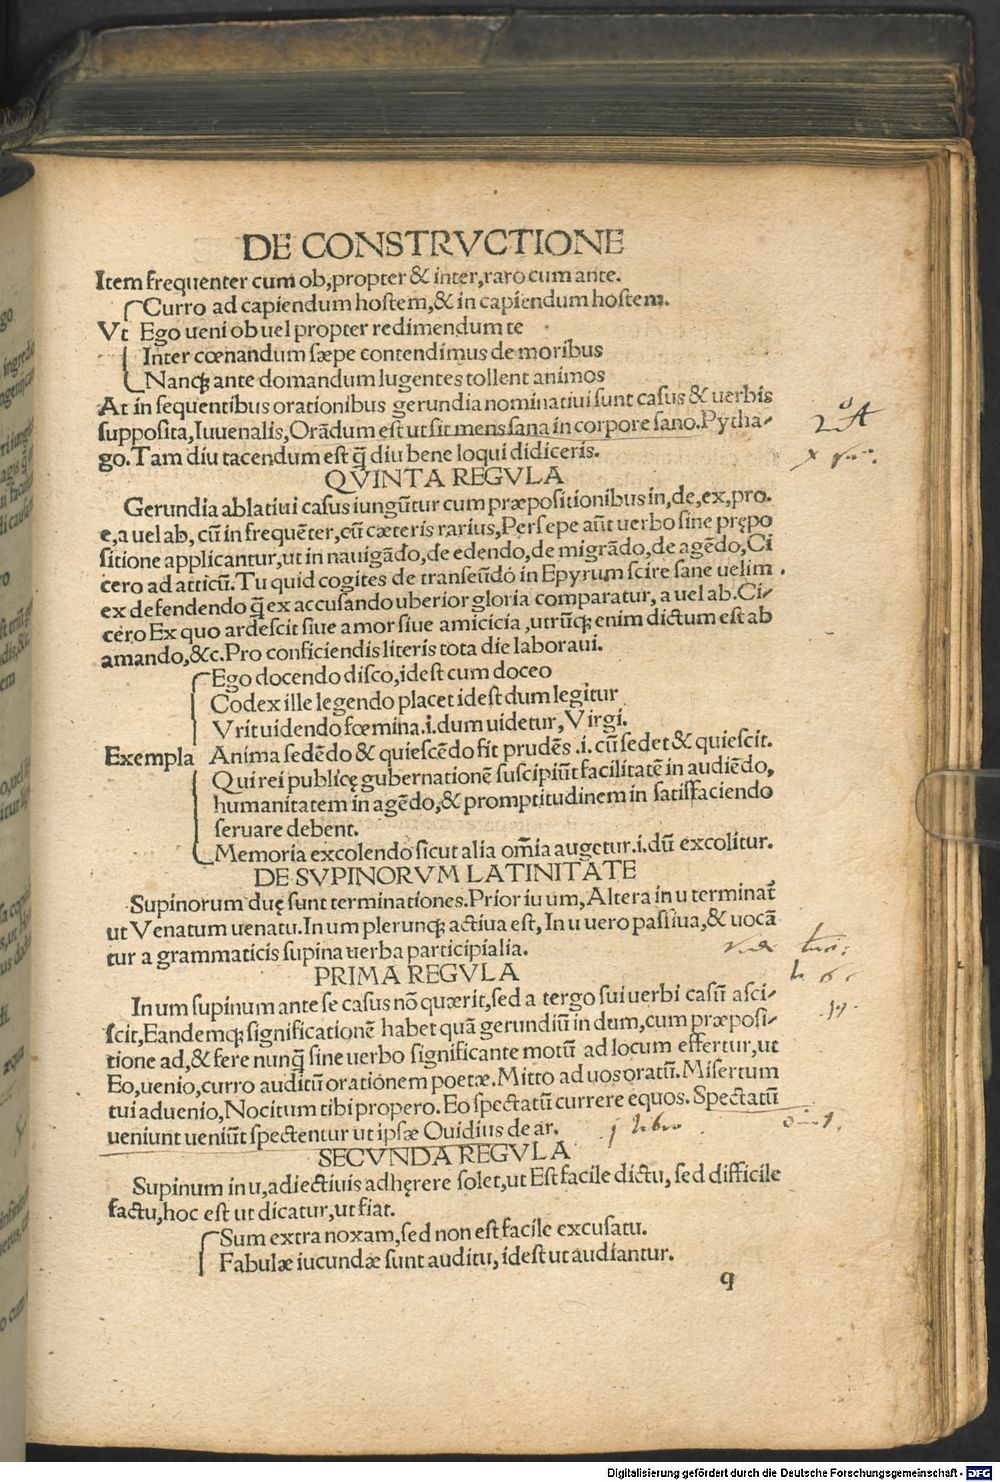 DE CONSTRVCTIONE
Item frequenter cum ob, propter & inter, raro cum ante.
Curro ad capiendum hoſtem, & in capiendum hoſtem.
Vt Ego ueni ob uel propter redimendum te
Inter cœnandum ſæpe contendimus de moribus
Nanqꝫ ante domandum lugentes tollent animos
At in ſequentibus orationibus gerundia nominatiui ſunt caſus & uerbis
ſuppoſita, Iuuenalis, Orādum eſt ut ſit mens ſana in corpore ſano. Pytha⸗
go. Tam diu tacendum eſt q̄ diu bene loqui didiceris.
QVINTA REGVLA
Gerundia ablatiui caſus iungūtur cum præpoſitionibus in, de, ex, pro.
e, a uel ab, cū in frequēter, cū cæteris rarius, Perſepe aūt uerbo ſine prępo
ſitione applicantur, ut in nauigādo, de edendo, de migrādo, de agēdo, Ci
cero ad atticū. Tu quid cogites de tranſeūdo in Epyrum ſcire ſane uelim.
ex defendendo q̄ ex accuſando uberior gloria comparatur, a uel ab. Ci⸗
cero Ex quo ardeſcit ſiue amor ſiue amicicia, utrūqꝫ enim dictum eſt ab
amando, &c. Pro conficiendis literis tota die laboraui.
Ego docendo diſco, ideſt cum doceo
Codex ille legendo placet ideſt dum legitur
Vrit uidendo fœmina .i. dum uidetur, Virgi.
Exempla Anima ſedēdo & quieſcēdo fit prudēs .i. cū ſedet & quieſcit.
Qui rei publicę gubernationē ſuſcipiūt facilitatē in audiēdo,
humanitatem in agēdo, & promptitudinem in ſatiſfaciendo
ſeruare debent.
Memoria excolendo ſicut alia om̄ia augetur .i. dū excolitur.
DE SVPINORVM LATINITATE
Supinorum duę ſunt terminationes. Prior iu um, Altera in u terminat̄
ut Venatum uenatu. In um plerunqꝫ actiua eſt, In u uero paſſiua, & uocā
tur a grammaticis ſupina uerba participialia.
PRIMA REGVLA
In um ſupinum ante ſe caſus nō quærit, ſed a tergo ſui uerbi caſū aſci⸗
ſcit, Eandemqꝫ ſignificationē habet quā gerundiū in dum, cum præpoſi⸗
tione ad, & fere nunq̄ ſine uerbo ſignificante motū ad locum effertur, ut
Eo, uenio, curro auditū orationem poetæ. Mitto ad uos oratū. Miſertum
tui aduenio, Nocitum tibi propero. Eo ſpectatū currere equos. Spectatū
ueniunt ueniūt ſpectentur ut ipſæ Ouidius de ar. j libro
SECVNDA REGVLA
Supinum in u, adiectiuis adhęrere ſolet, ut Eſt facile dictu, ſed difficile
factu, hoc eſt ut dicatur, ut fiat.
Sum extra noxam, ſed non eſt facile excuſatu.
Fabulæ iucundæ ſunt auditu, ideſt ut audiantur.
q
Digitalisierung gefördert durch die Deutsche Forschungsgemeinschaft - DFG